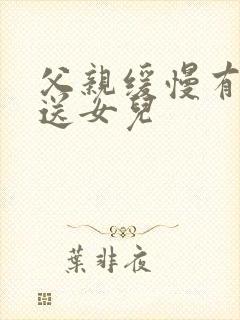 父親緩慢有
送女兒
葉非夜